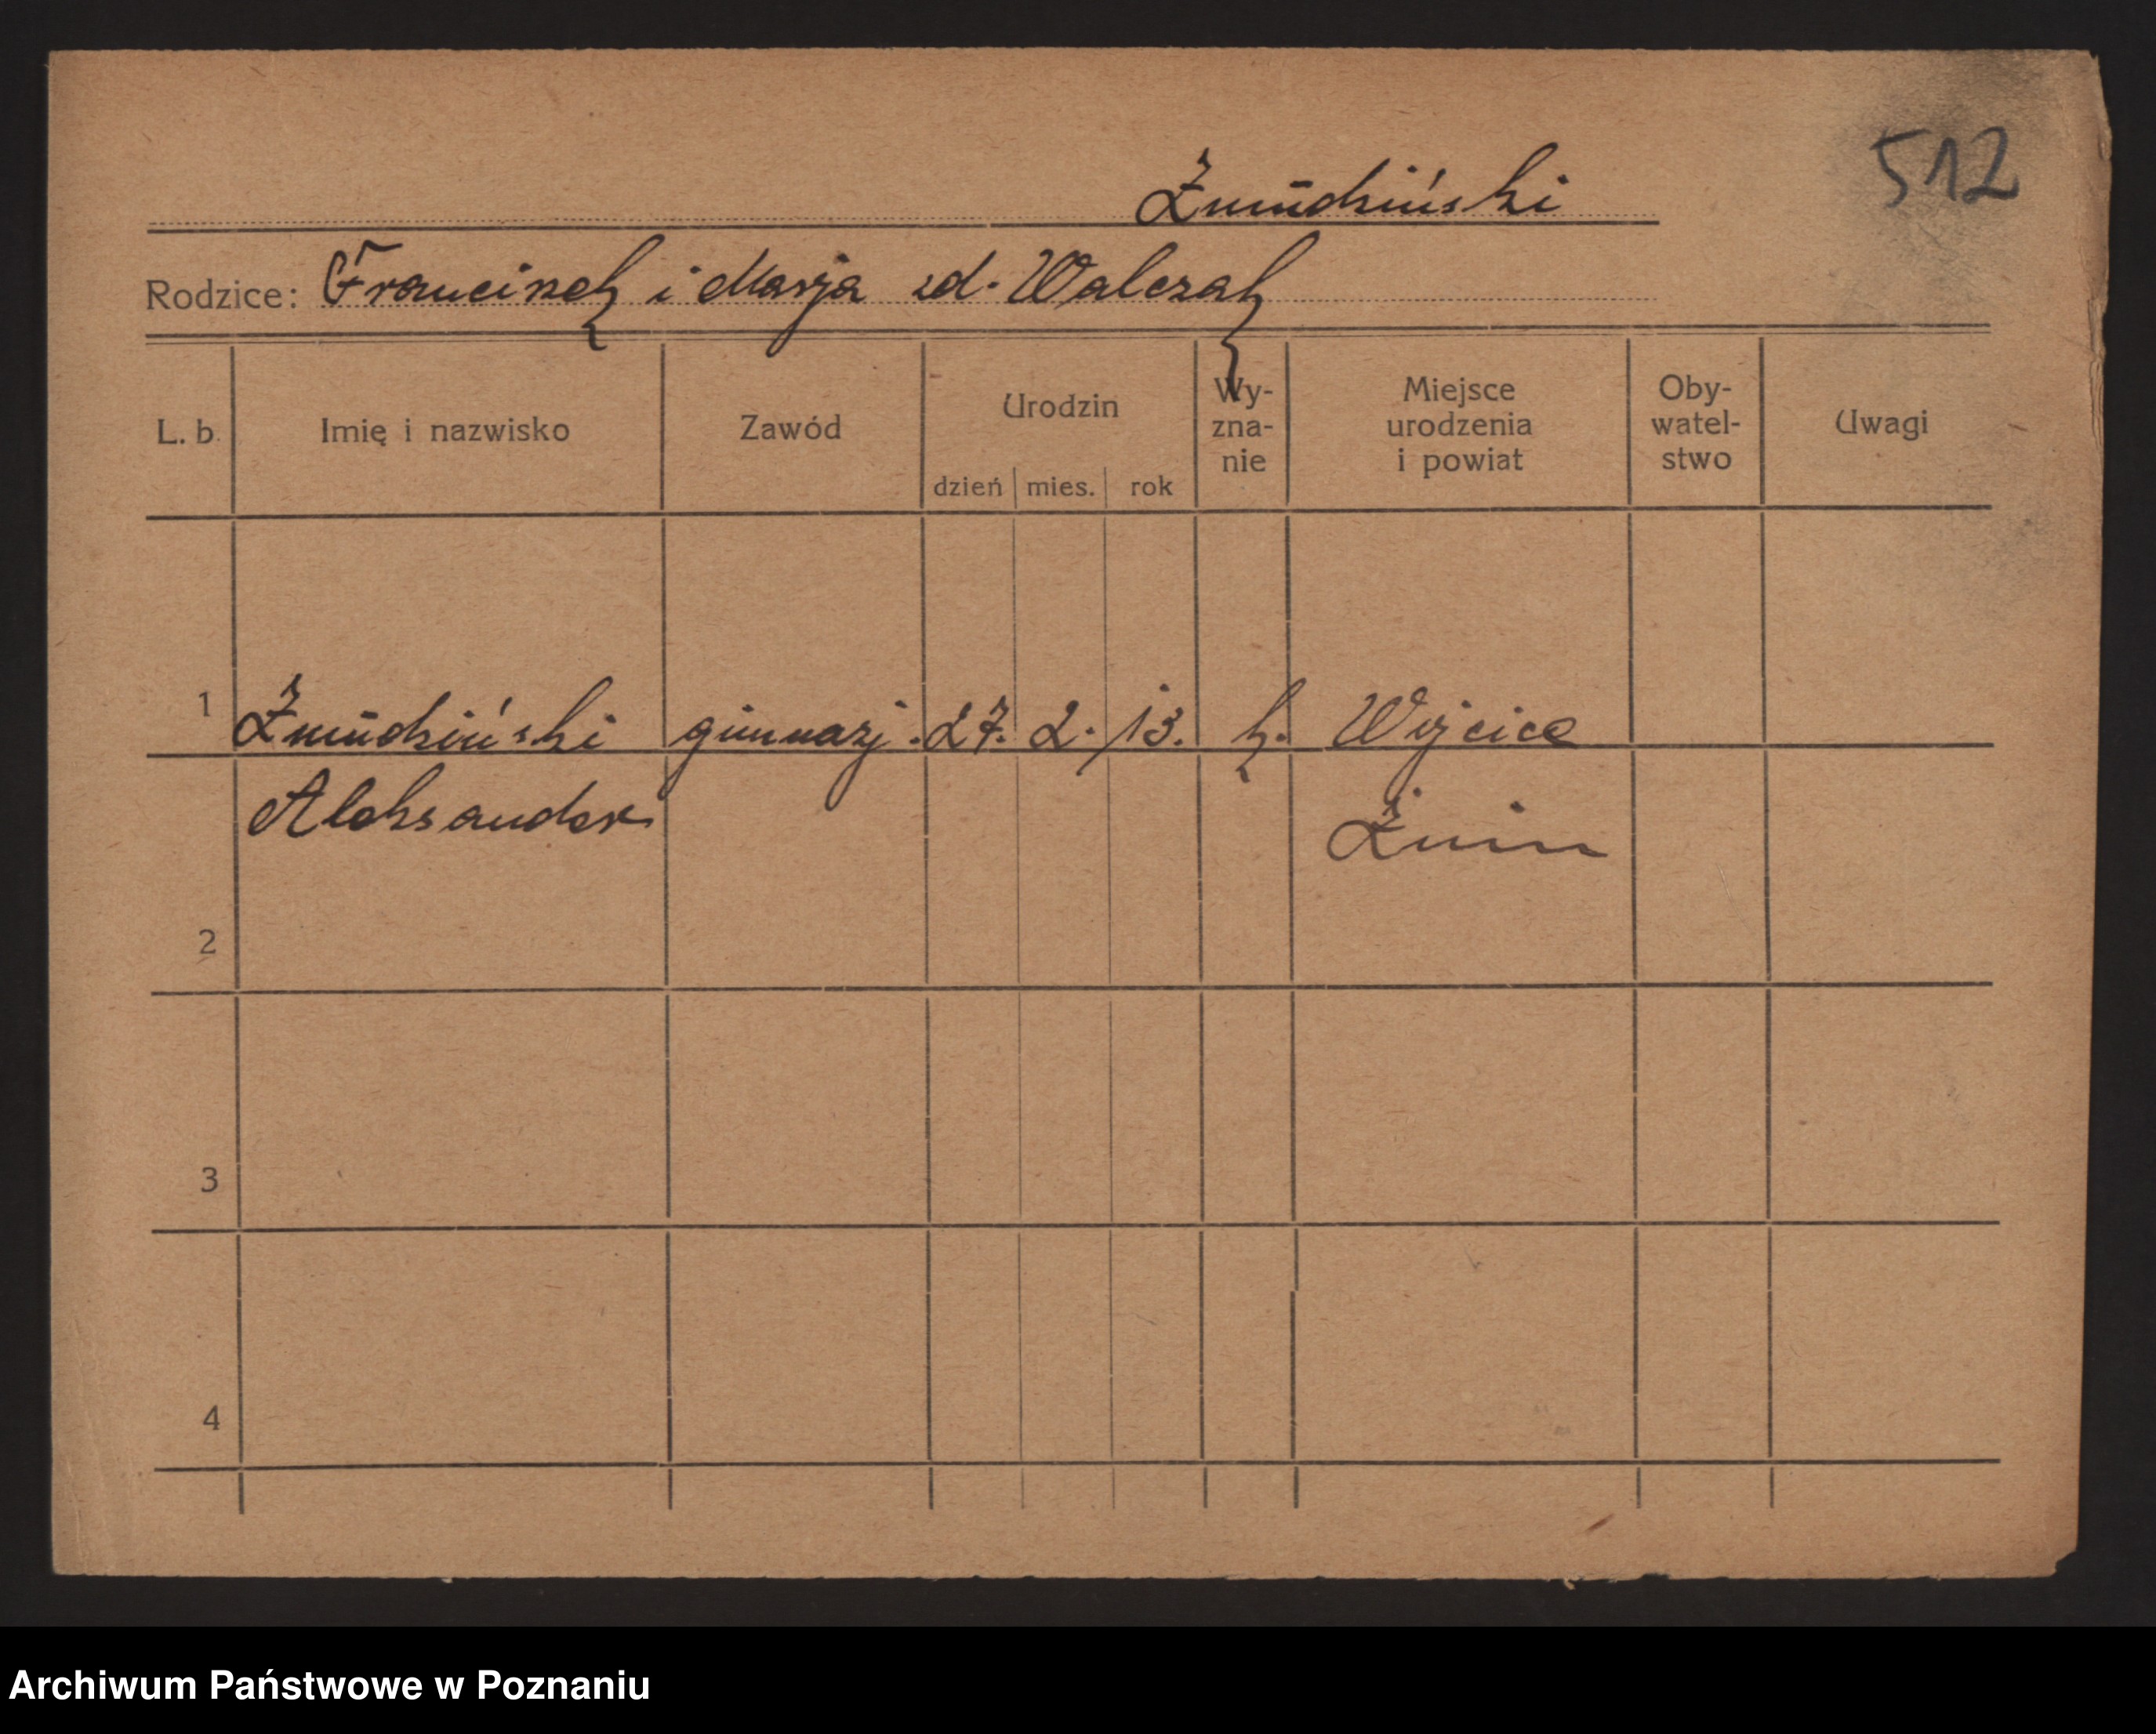 512
Żmudziński
Rodzice: Franciszek i Marja zd. Walczak
L. b. Imię i nazwisko Zawód Urodzin dzień mies. rok Wy-zna-nie Miejsce urodzenia i powiat Oby-watel-stwo Uwagi
1 Żmudziński gimnazj. 27. 2. 13. k. Wójcice
Aleksander Żnin
2
3
4
Archiwum Państwowe w Poznaniu